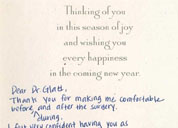 Thinking of you
in this season of joy
and wishing you
every happiness
in the coming new year.
Dear Dr.
Thank you for making me comfortable
before and after the surgery
during.
I felt very confident having you as